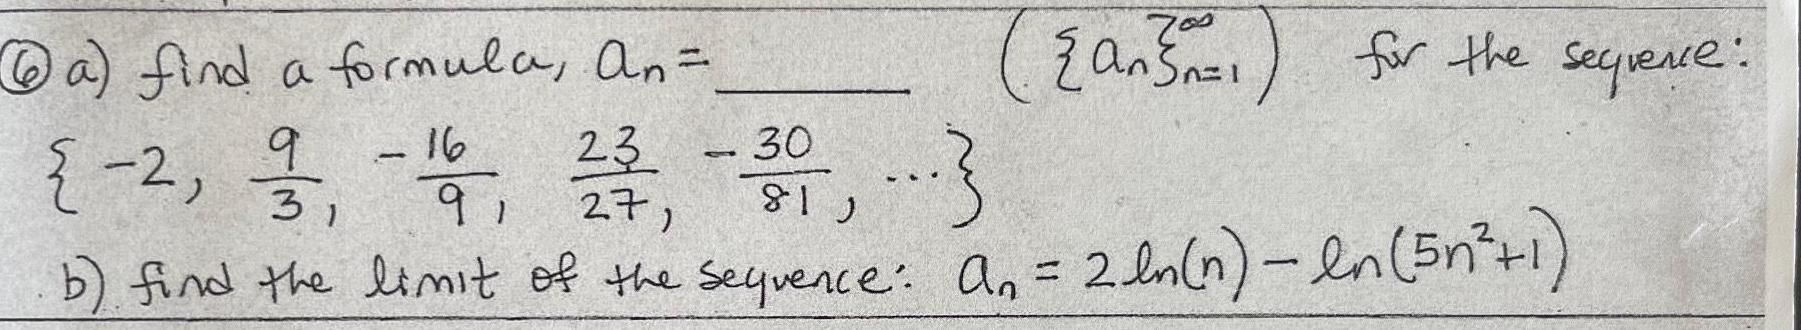 ⑥ a) find a formula, aₙ = ______ ({aₙ}ₙ₌₁^∞) for the sequence:
{ -2, 9/3, -16/9, 23/27, -30/81, ... }
b) find the limit of the sequence: aₙ = 2 ln(n) - ln(5n²+1)